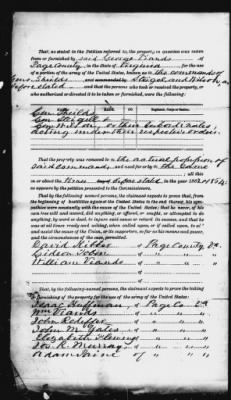 That, as stated in the Petition referred to, the property in question was taken
from or furnished by said George Viands
of Page County, in the State of Virginia, for the use
of a portion of the army of the United States, known as the commands of
Gens Shields and Steigel and Wilson, as
before stated and that the persons who took or received the property, or
who authorized or directed it to be taken or furnished, were the following:
NAME. RANK. Regiment, Corps or Station.
Gen Shields
Gen
and their subordinates,
acting under their respective orders.
That the property was removed to the actual possession of
said commands and used
all this
on or about the times before stated, in the year 1862 & 1864
as appears by the petition presented to the Commissioners.
That, by the following-named persons, the claimant expects to prove that, from the
beginning of hostilities against the United States to the end thereof, his sym-
pathies were constantly with the cause of the United States; that he never, of his
own free will and accord, did anything, or offered, or sought, or attempted to do
anything, by word or deed, to injure said cause or retard its success, and that he
was at all times ready and willing, when called upon, or if called upon, to aid
and assist the cause of the Union, or its supporters, so far as his means and power,
and the circumstances of the case permitted:
David Kibler of Page County Va.
Gideon
William Viands " " "
That, by the following-named persons, the claimant expects to prove the taking
or furnishing of the property for the use of the army of the United States:
Isaac Huffman, of Page Co Va
Wm Viands of " " "
John of " " "
John M of " " "
Elizabeth of " " "
Jos. R. Murray, of " " "
Adam of " " "